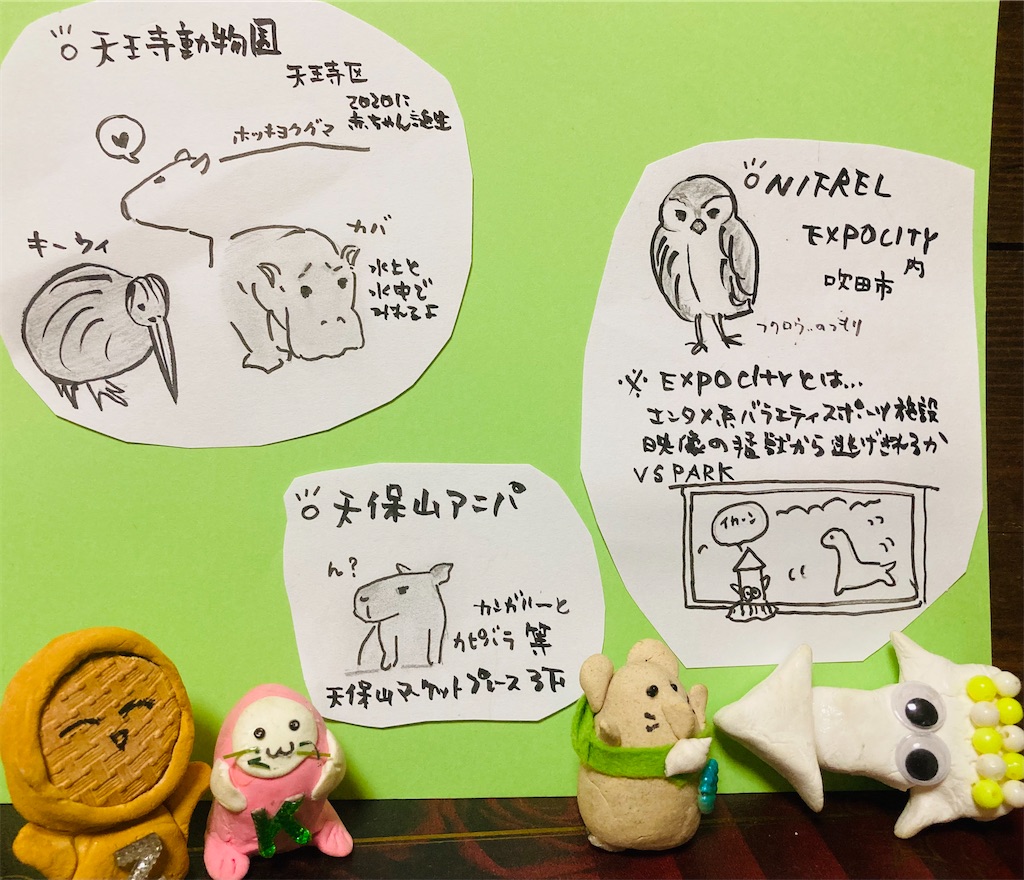 天王寺動物園
天王寺区
2020に
赤ちゃん誕生
ホッキョクグマ
キーウィ
カバ
水上と
水中で
みれるよ
NIFREL
EXPOCITY
内
吹田市
フクロウ…のつもり
※ EXPOCITYとは…
エンタメ系バラエティスポーツ施設
映像の猛獣から逃げきれるか
VS PARK
イカーン
天保山アニパ
ん?
カンガルーと
カピバラ 等
天保山マーケットプレース 3F
K